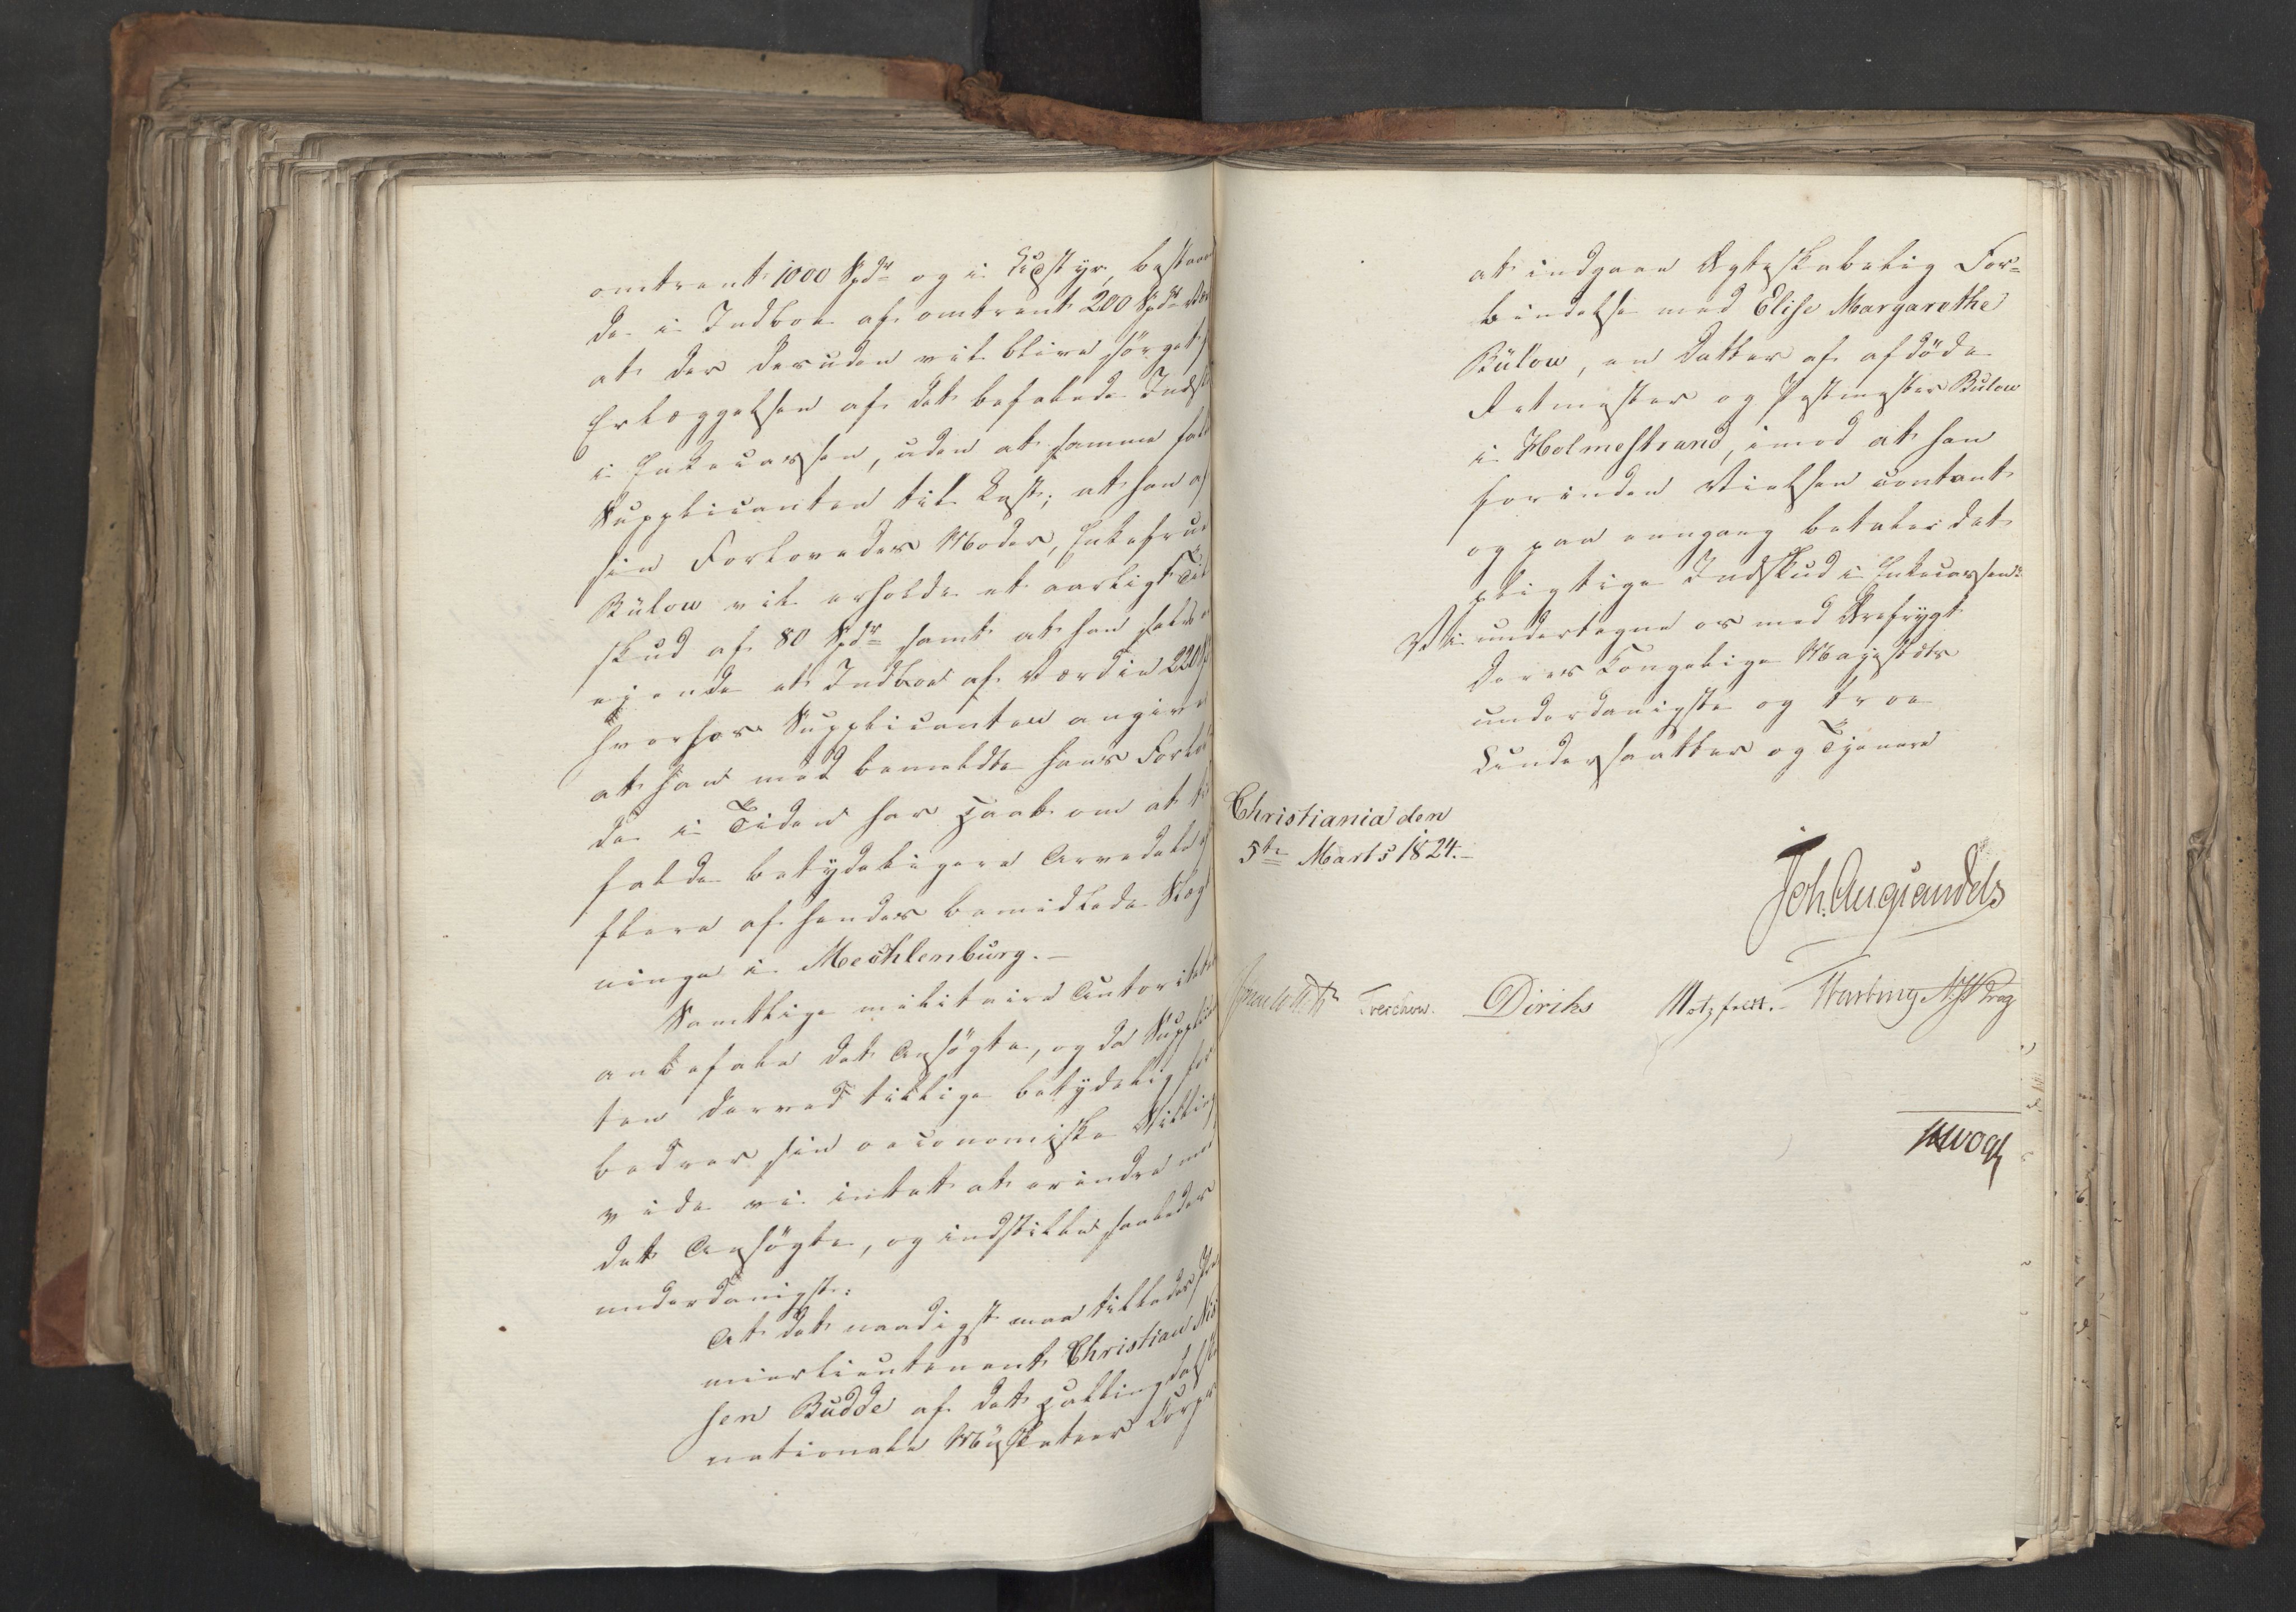 omtrent 1000 Spdr og i Udstyr, bestaaen
de i Indboe af omtrent 200 Spdr Vær
at der desuden vil blive sørget f
Erlæggelsen af det befalede Indsk
i Enkecassen, uden at samme fald
Supplicanten til Last; at han af
sin Forlovedes Moder, Enkefrue
Bülow vil erholde et aarligt Til
skud af 80 Spdr samt at han selv er
ejende et Indboe af Værdie 220 Sp
hvorhos Supplicanten angiver
at han med bemeldte hans Forlov
de i Tiden har Haab om at til
falde betydeligere Arvedele ef
flere af hendes bemidlede Slægt
ninge i Mechlenburg.-
Samtlige militaire Autoriteter
anbefale det Ansøgte, og da Supplican
ten derved tillige betydelig for
bedrer sin oeconomiske Stilling
vide vi intet at erindre mod
det Ansøgte, og indstille saaledes
underdanigst:
At det naadigst maa tillades Pre
mierlieutenant Christian Niel
sen Budde af det Hallingdalske
nationale Musketeer Corps
at indgaae Ægteskabelig For=
bindelse med Elise Margarethe
Bülow, en Datter af afdøde
Retmester og Postmester Bülow
i Holmestrand, imod at han
forinden Vielsen contant
og paa eengang betaler det
pligtige Indskud i Enkecassen.
Vi undertegne os med Ærefrygt
Deres Kongelige Majestæts
underdanigste og troe
Undersaatter og Tjenere
Christiania den
5te Marts 1824.-
Joh. Aug: Sandels
Sommerhielm Treschow. Diriks Motzfeldt.- Fasting PHKrag
Vogt